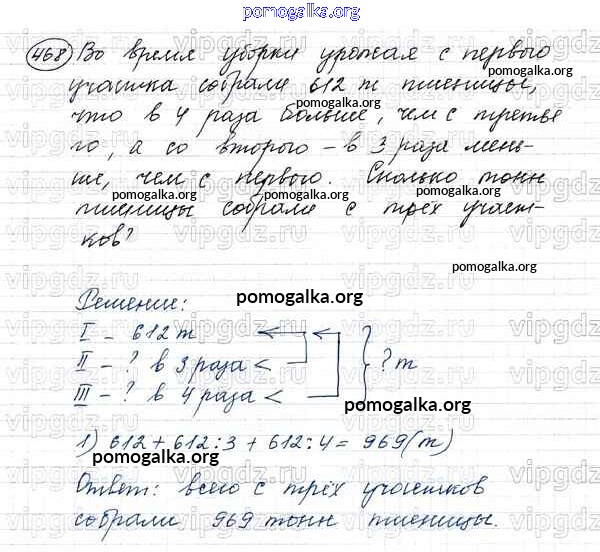 pomogalka.org
468) Во время уборки урожая с первого
участка собрали 612 т пшеницы,
что в 4 раза больше, чем с третье-
го, а со второго – в 3 раза мень-
ше, чем с первого. Сколько тонн
пшеницы собрали с трёх участ-
ков?
pomogalka.org
Решение:
pomogalka.org
I – 612 т
II – ? в 3 раза <
III – ? в 4 раза <
? т
pomogalka.org
1) 612 + 612 : 3 + 612 : 4 = 969 (т)
pomogalka.org
Ответ: всего с трёх участков
собрали 969 тонн пшеницы.
pomogalka.org